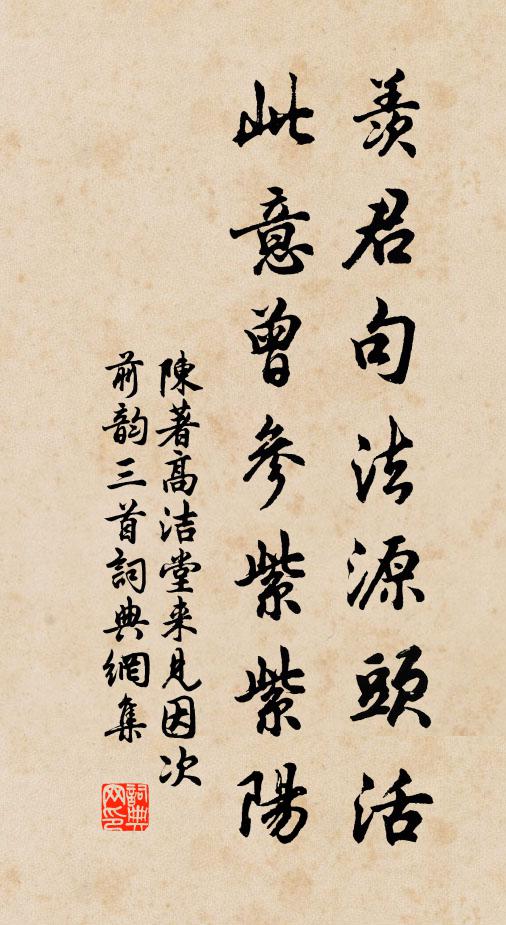 羨君句法源頭活
此意曾參紫紫陽
陳著高洁堂来見因次
前韵三首詞典網集
詞典网印